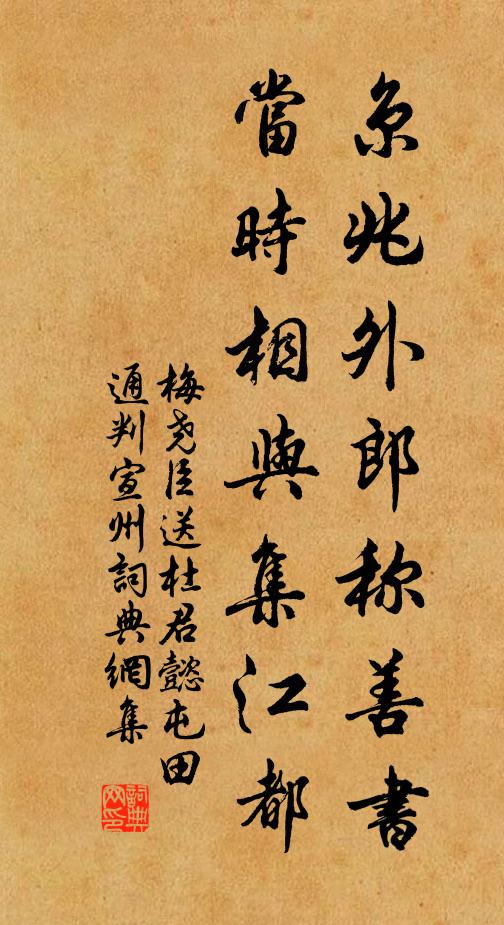 京兆外郎称善書
當時相與集江都
梅尧臣送杜君懿屯田
通判宣州詞典網集
詞典网印